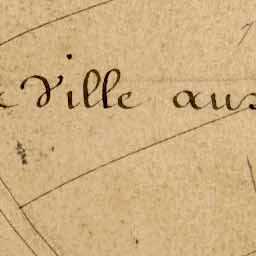 Ville aux